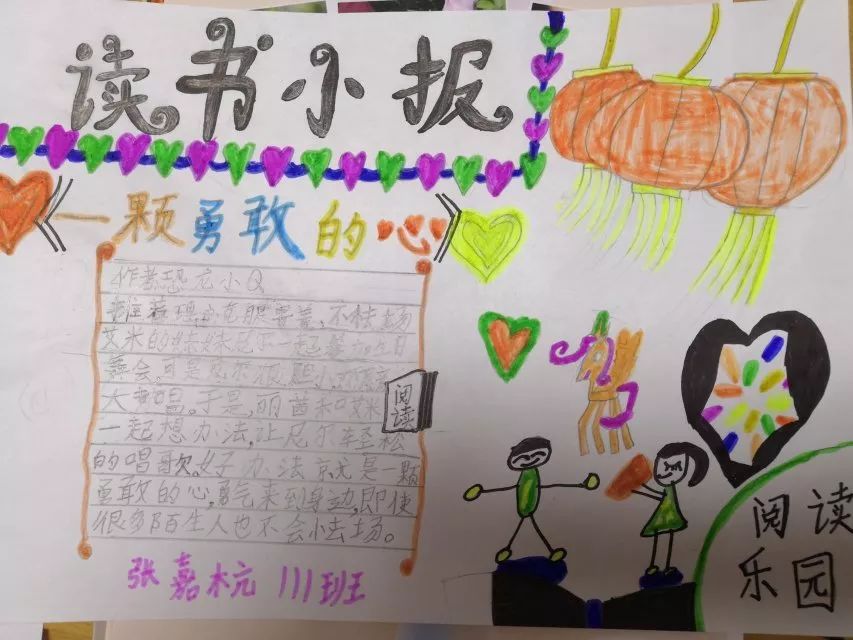 读书小报
《一颗勇敢的心》
作者恐龙小Q
害羞、不怯场
艾米的妹妹尼尔一起参加生日
舞会,可是尼尔很胆小,不愿意
大声唱。于是,丽茜和艾米
一起想办法,让尼尔轻松
的唱歌,好办法就是一颗
勇敢的心,勇气来到身边,即使
很多陌生人也不会怯场。
阅读
张嘉杬 111班
阅读
乐园